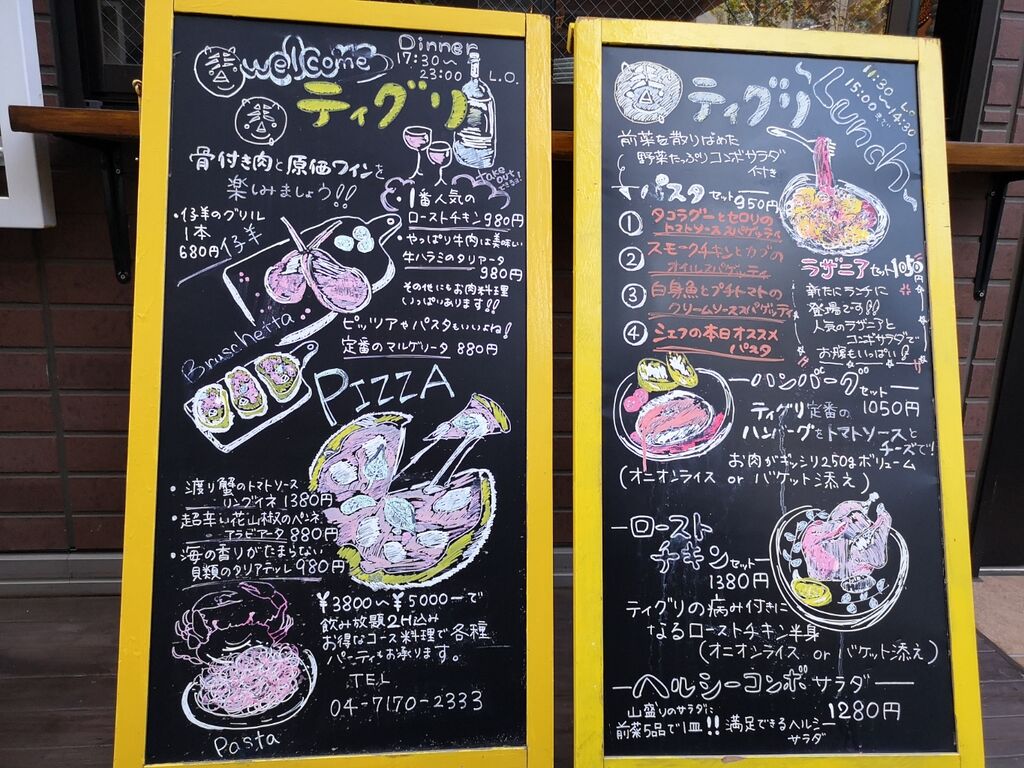 welcome
Dinner
17:30～
23:00 L.O.
ティグリ
骨付き肉と原価ワインを
楽しみましょう!!
Take out
・1番人気の
ローストチキン 980円
・やっぱり牛肉は美味しい
牛ハラミのタリアータ
980円
その他にもお肉料理
いっぱいあります!!
・仔羊のグリル
1本
680円
仔羊
ピッツアやパスタもいいよね!
定番のマルゲリータ 880円
Bruschetta
PIZZA
・渡り蟹のトマトソース
リングイネ 1380円
・超辛い花山椒のペンネ
アラビアータ 880円
・海の香りがたまらない
貝類のタリアテッレ 980円
¥3800～¥5000一で
飲み放題2H込み
お得なコース料理で各種
パーティもお承ります。
TEL
04-7170-2333
Pasta
ティグリ
Lunch
11:30～14:30 L.O
15:00まで
前菜を散りばめた
野菜たっぷりコンボサラダ
付き
パスタセット950円
① タコラグーとセロリの
トマトソーススパゲッティ
② スモークチキンとカブの
オイルスパゲッティ
③ 白身魚とプチトマトの
クリームソーススパゲッティ
④ シェフの本日オススメ
パスタ
ラザニアセット1050円
新たにランチに
登場です!!
人気のラザニアと
コンボサラダで
お腹もいっぱい!
ハンバーグセット
1050円
ティグリ定番の
ハンバーグをトマトソースと
チーズで!
お肉がギッシリ250gボリューム
(オニオンライス or バゲット添え)
ロースト
チキンセット
1380円
ティグリの病み付きに
なるローストチキン半身
(オニオンライス or バゲット添え)
ヘルシーコンボサラダ
1280円
山盛りのサラダに
前菜5品で1皿!!満足できるヘルシー
サラダ